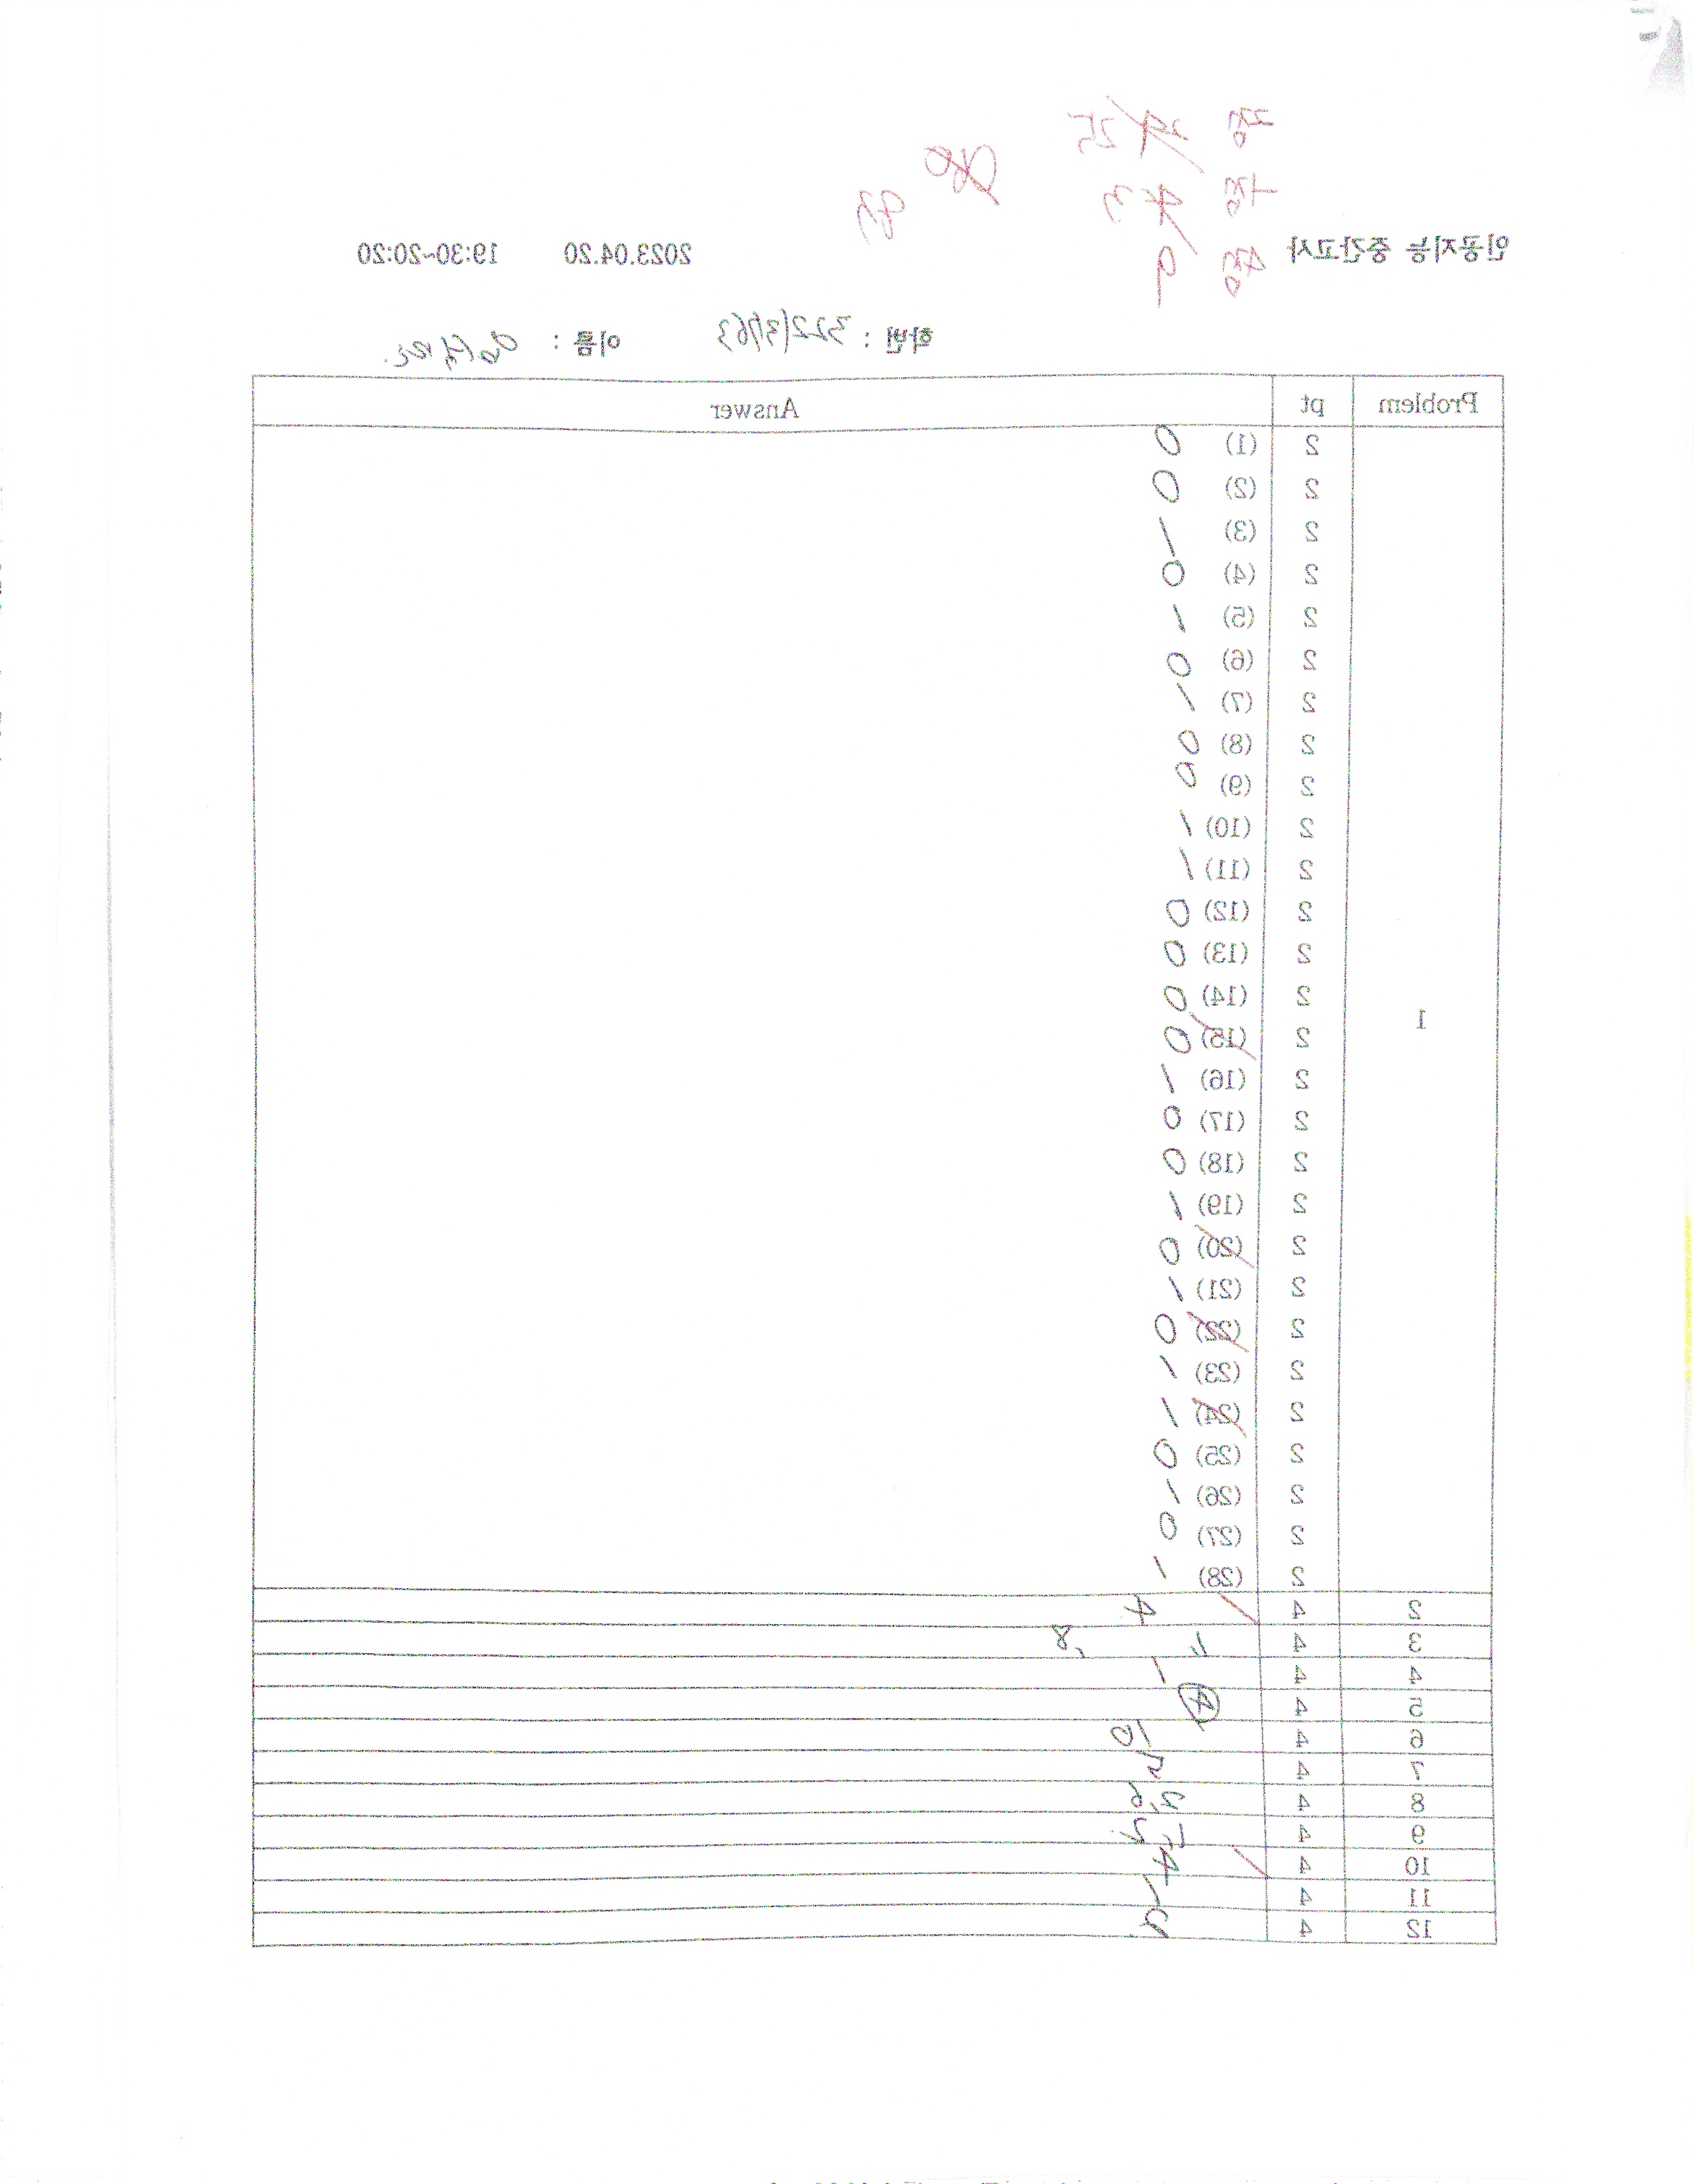 인공지능 중간고사 2023.04.20 19:30~20:20
학번 : 32213763 이름 :
Problem pt Answer
1
2 (1) 0
2 (2) 0
2 (3) 1
2 (4) 0
2 (5) 1
2 (6) 0
2 (7) 1
2 (8) 0
2 (9) 0
2 (10) 1
2 (11) 1
2 (12) 0
2 (13) 0
2 (14) 0
2 (15) 0
2 (16) 1
2 (17) 0
2 (18) 0
2 (19) 1
2 (20) 0
2 (21) 1
2 (22) 0
2 (23) 1
2 (24) 1
2 (25) 0
2 (26) 1
2 (27) 0
2 (28) 1
2 4 4
3 4 8
4 4 1
5 4 4
6 4 10
7 4
8 4
9 4
10 4 4
11 4 1
12 4